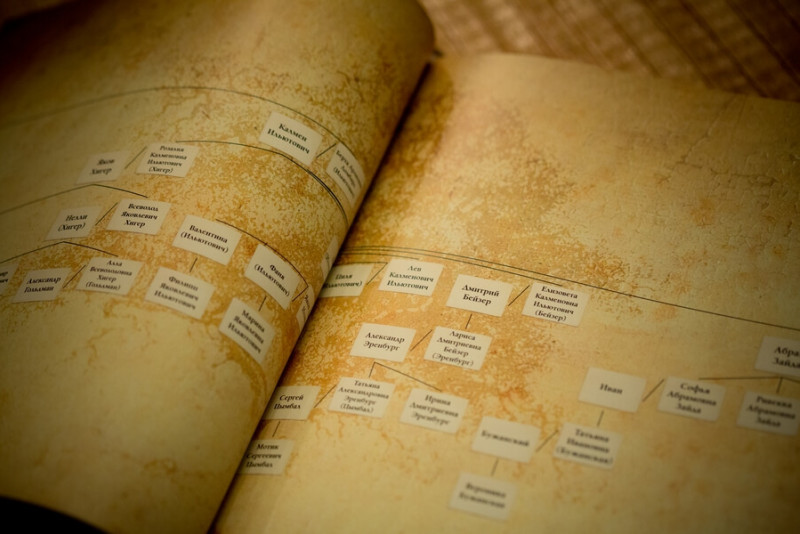 Калмен
Ильютович
Яков
Хигер
Розалия
Калменовна
Ильютович
(Хигер)
Нелли
(Хигер)
Всеволод
Яковлевич
Хигер
Валентина
(Ильютович)
Фаня
(Ильютович)
Александр
Гольдман
Алла
Всеволодовна
Хигер
(Гольдман)
Филипп
Яковлевич
Ильютович
Марина
Яковлевна
Ильютович
(Ильютович)
Лев
Калменович
Ильютович
Дмитрий
Бейзер
Елизавета
Калменовна
Ильютович
(Бейзер)
Александр
Эренбург
Лариса
Дмитриевна
Бейзер
(Эренбург)
Сергей
Цымбал
Татьяна
Александровна
Эренбург
(Цымбал)
Ирина
Дмитриевна
Эренбург
Иван
Софья
Абрамовна
Зайд
Абрамовна
Бужанский
Татьяна
Ивановна
(Бужанская)
Сергеевич
Цымбал
Вероника
Бужанская